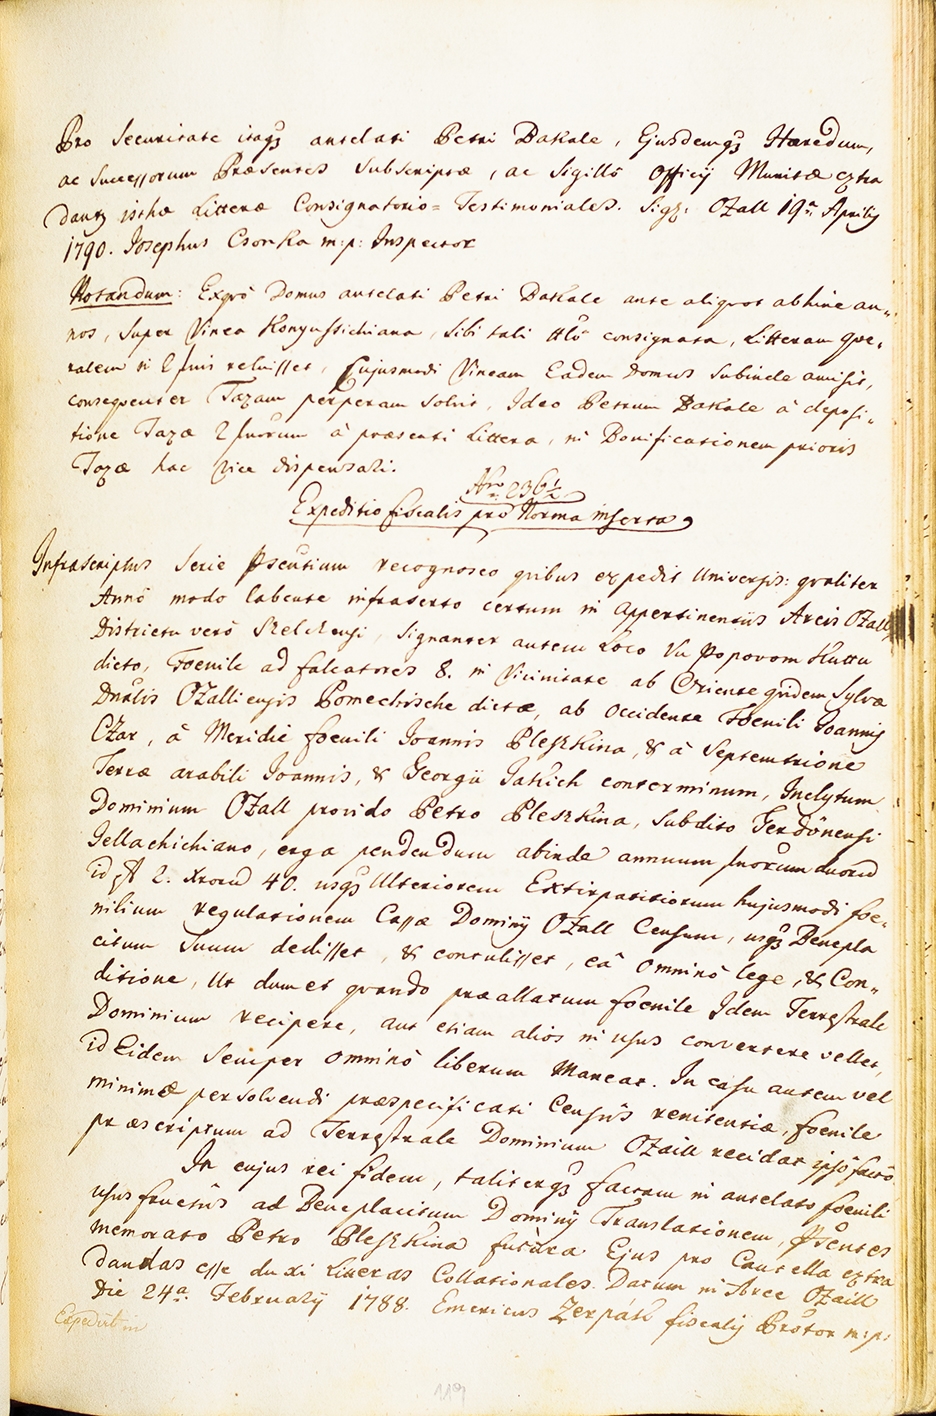 Pro Securitate itaq₃ antelati Petri Dakale, Ejusdemq₃ Hæredum,
ac Successorum Præsentes subscriptæ, ac Sigillô Officÿ Munitæ extra
dantur isthæ Litteræ Consignatorio= Testimoniales. Sigz. Ozall 19ª Aprilis
1790. Josephus Csonka m:p: Inspector
Notandum: Domus antelati Petri Dakale ante aliquot abhinc an=
nos, super Vinea Konyustichiana, sibi tali consignata, Litteram
ralem in reluisset, Cujusmodi Vineam Eadem Domus Subinde amisit,
consequenter Taxam perperam Solvit, Ideo Petrum Dakale â deposi=
tione Taxæ 2 fnorum â præsenti Littera, in Bonificationem prioris
Taxæ hac Vice dispensati.
Nro 236½
Expeditio fiscalis prô Norma inserta
Infrascriptus Serie Psentium recognosco quibus expedit Universis: qualiter
Annô modo labente infraserto certum in Appertinentiis Arcis Ozall
Districtu verô signanter autem Loco Vu Popovom Kuttu
dicto, Foenile ad falcatores 8. in Vicinitate ab Oriente qdem Sylvæ
Dnalis Ozalliensis Pomechische dictæ, ab occidente Foenili Joannis
Czar, â Meridie foenili Joannis Pleszkina, & â Septemtrione
Terræ arabili Joannis, & Georgii Jakich conterminum, Inclytum
Dominium Ozall provido Petro Pleszkina, subdito
Jellachichiano, erga pendendum abinde annuum fnorum duorum
id 2. Xrorum 40. usq₃ Ulteriorem Extirpatitiorum hujusmodi foe=
nilium regulationem Cassæ Dominÿ Ozall Censum, usq₃ Benepla
citum Suum dedisset, & contulisset, eâ omninô lege, & Con=
ditione, Ut dum et quando præallatum foenile Idem Terrestrale
Dominium recipere, aut etiam aliôs in usus convertere vellet,
id Eidem Semper omninô liberum Maneat. In casu autem vel
minimæ persolvendi præspecificati Censûs renitentiæ, foenile
præscriptum ad Terrestrale Dominium Ozaill recidat ipsô factô
In cujus rei fidem, taliterq₃ factam in antelato foenili
usus fructûs ad Beneplacitum Dominÿ Translationem, Psentes
memorato Petro Pleszkina futura Ejus pro Cautella extra
dandas esse duxi Litteras Collationales. Datum in Arce Ozaill
Die 24ª. Februarÿ 1788. Emericus Zerpák fiscalis Prôtor m:p:
119